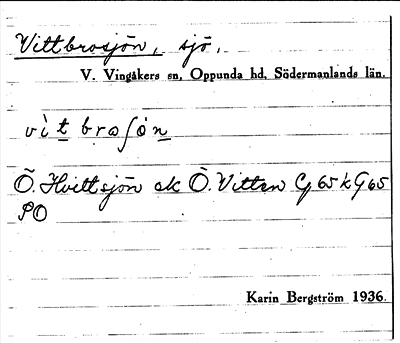 Vittbrosjön, sjö.
V. Vingåkers sn, Oppunda hd, Södermanlands län.
vìt bro ʃön
Ö. Hvittsjön ek Ö. Vitten Cg 65 k G 65
PO
Karin Bergström 1936.